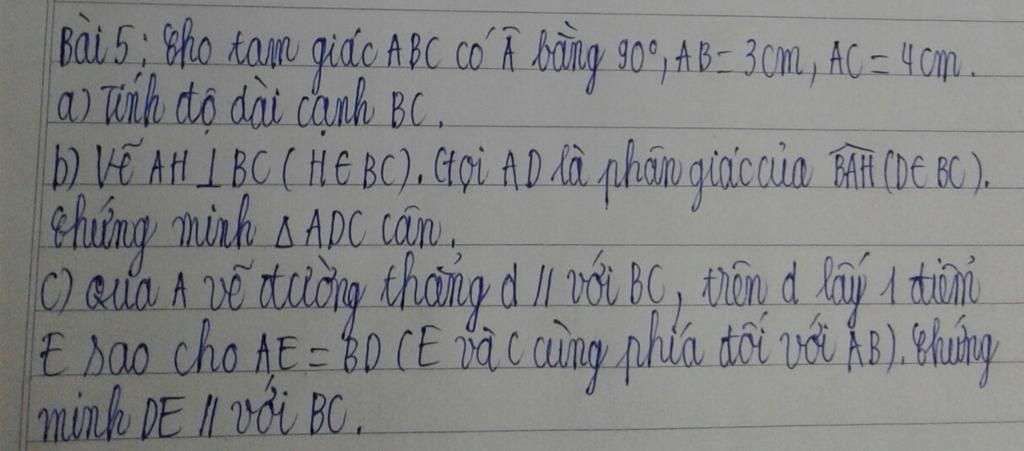 Bài 5: Cho tam giác ABC có Â bằng 90°, AB = 3cm, AC = 4cm.
a) Tính độ dài cạnh BC.
b) Vẽ AH ⊥ BC (H ∈ BC). Gọi AD là phân giác của BAH (D ∈ BC).
Chứng minh Δ ADC cân.
c) Qua A vẽ đường thẳng d // với BC, trên d lấy 1 điểm
E sao cho AE = BD (E và C cùng phía đối với AB). Chứng
minh DE // với BC.